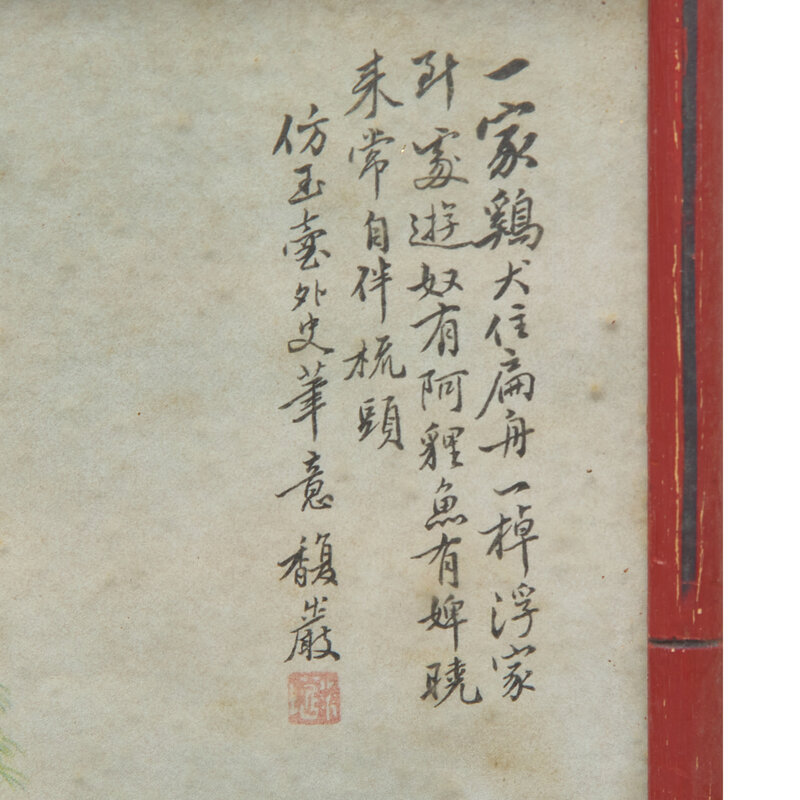 一家鷄犬住扁舟一棹浮家
到處遊奴有阿貍魚有婢曉
来常自伴梳頭
仿玉臺外史筆意馥巖